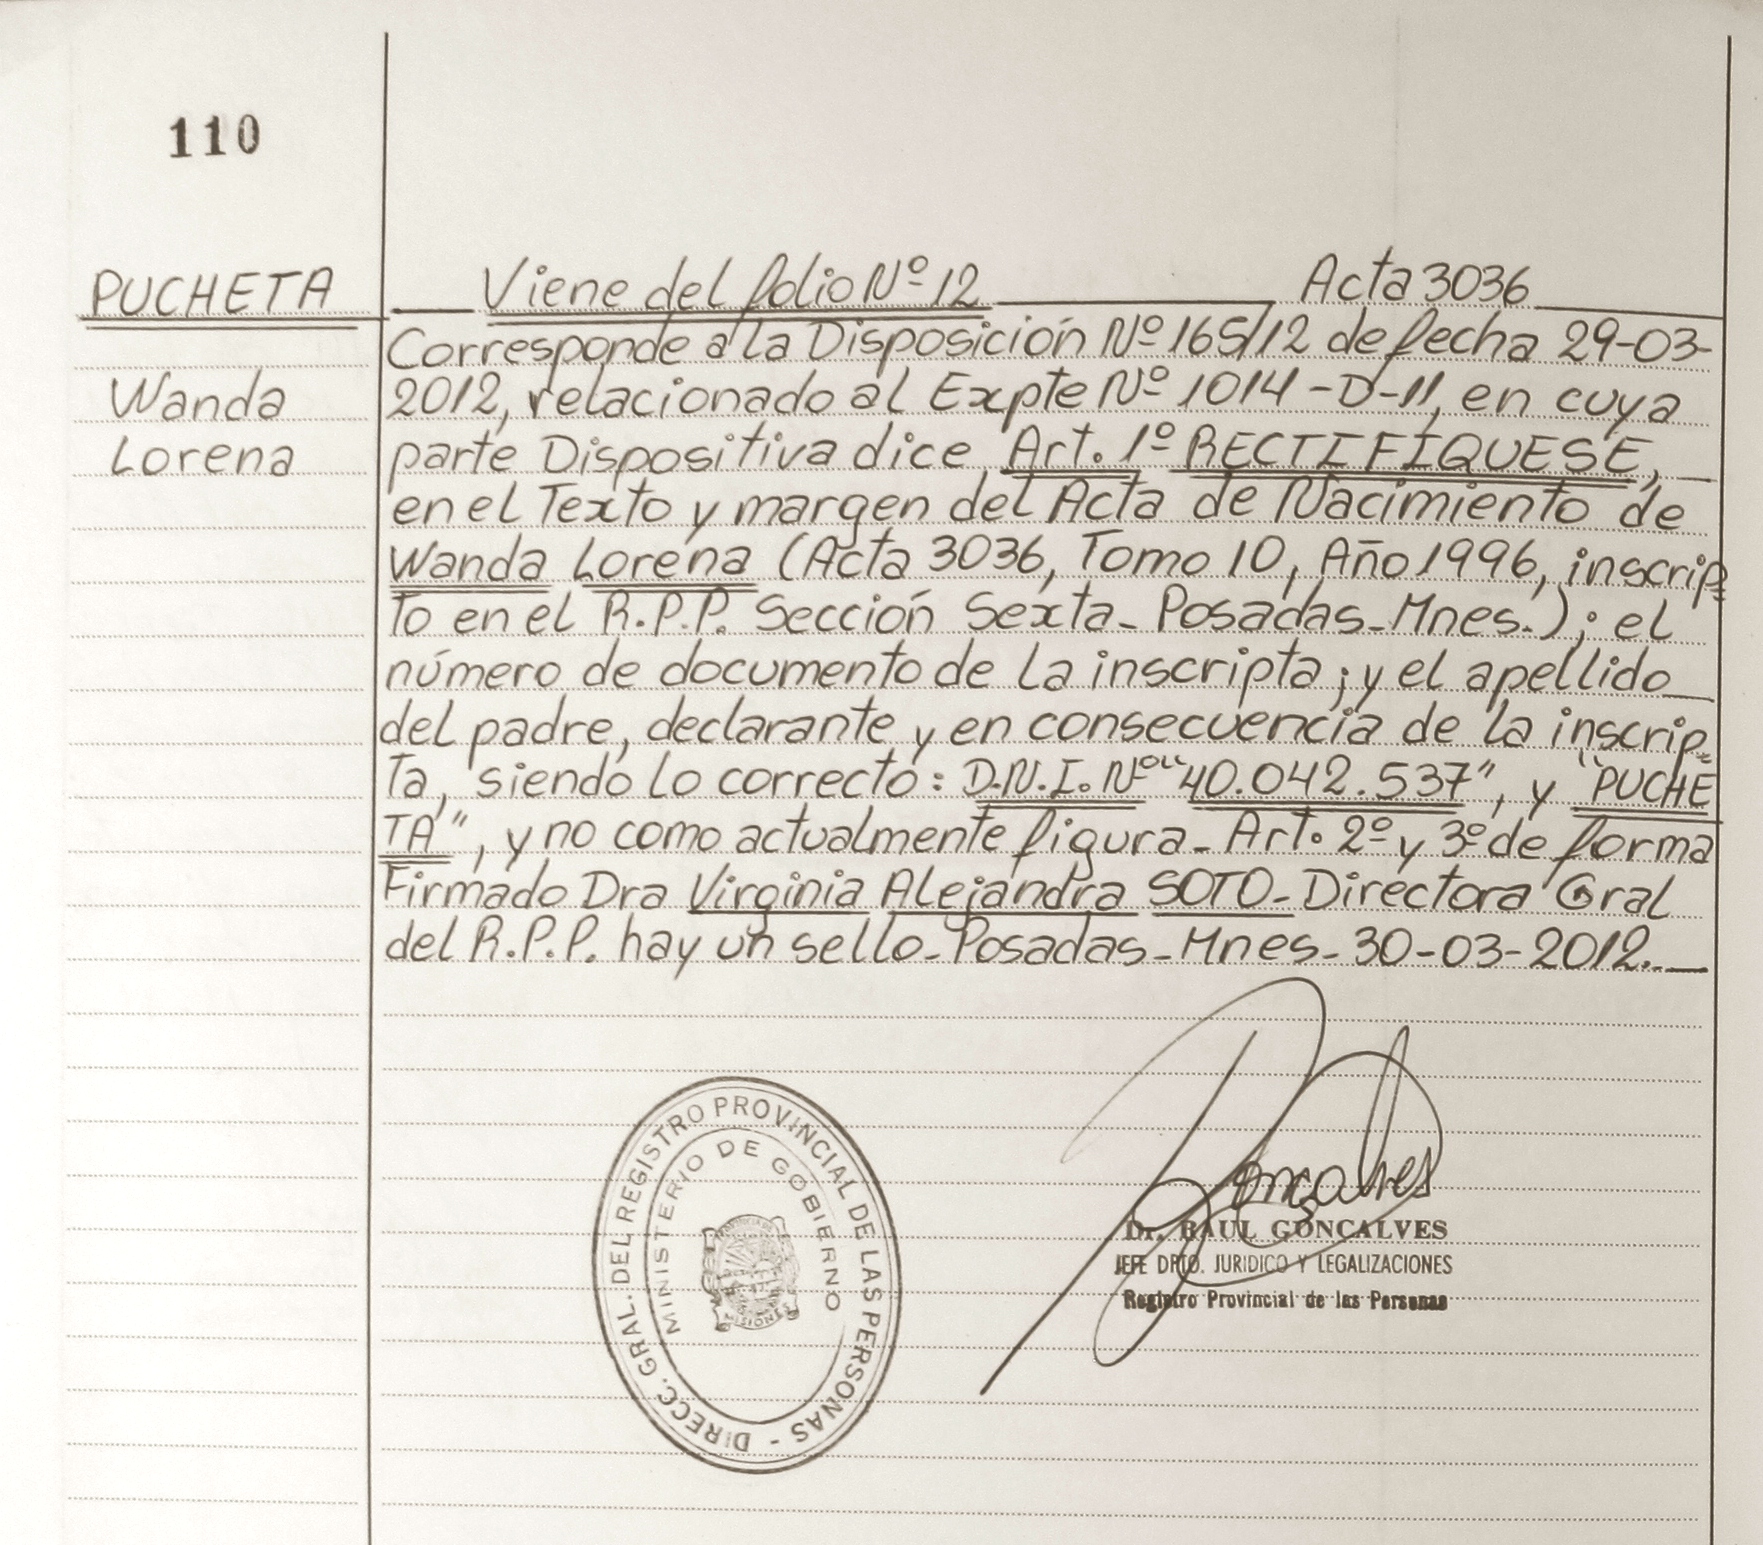 110
PUCHETA
Wanda
Lorena
Viene del folio Nº 12 Acta 3036
Corresponde a la Disposición Nº 165/12 de fecha 29-03-
2012, relacionado al Expte Nº 1014-D-11, en cuya
parte Dispositiva dice, Art. 1º RECTIFÍQUESE,
en el Texto y margen del Acta de Nacimiento de
Wanda Lorena (Acta 3036, Tomo 10, Año 1996, inscrip=
to en el R.P.P. Sección Sexta- Posadas-Mnes.); el
número de documento de la inscripta; y el apellido
del padre, declarante y en consecuencia de la inscrip=
ta, siendo lo correcto: D.N.I. Nº "40.042.537", y "PUCHE
TA", y no como actualmente figura- Art. 2º y 3º de forma
Firmado Dra Virginia Alejandra SOTO- Directora Gral
del R.P.P. hay un sello- Posadas-Mnes- 30-03-2012.
DIRECC. GRAL. DEL REGISTRO PROVINCIAL DE LAS PERSONAS -
MINISTERIO DE GOBIERNO
PROVINCIA DE
MISIONES
Goncalves
Dr. RAUL GONCALVES
JEFE DPTO. JURIDICO Y LEGALIZACIONES
Registro Provincial de las Personas